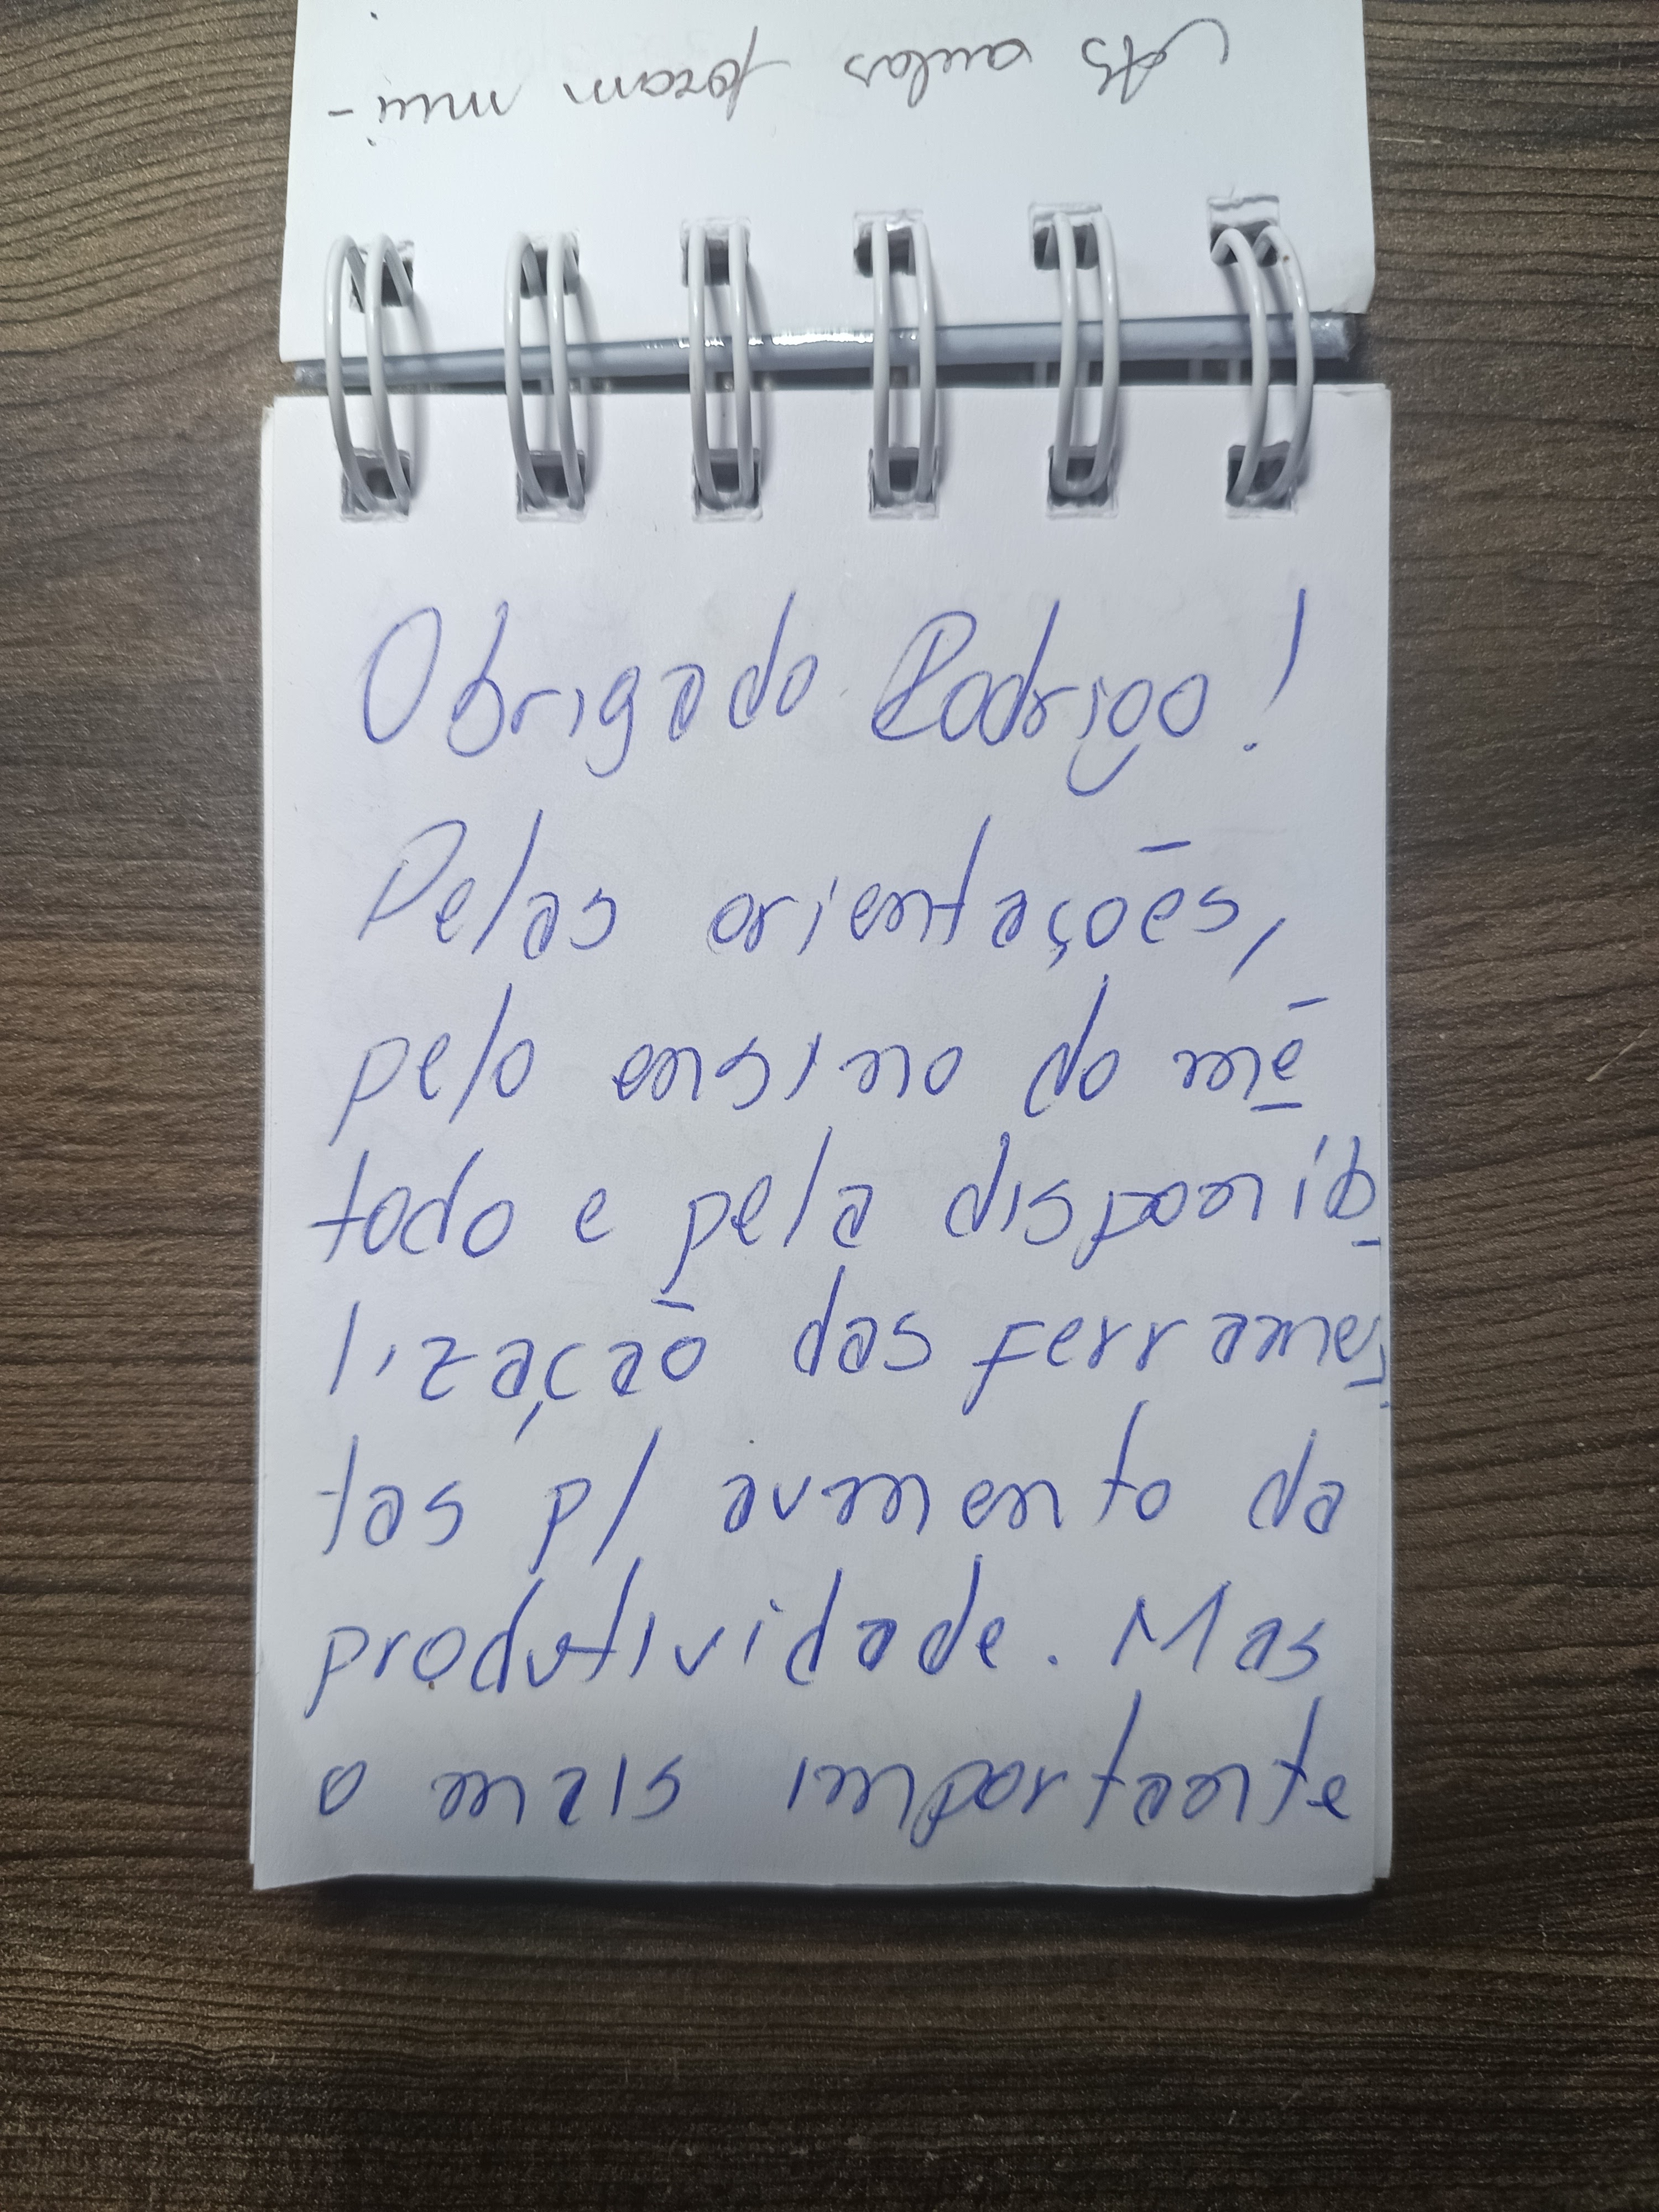 As aulas foram mui-
Obrigado Rodrigo!
Pelas orientações,
pelo ensino do mé
todo e pela disponib
lização das ferramen
tas p/ aumento da
produtividade. Mas
o mais importante